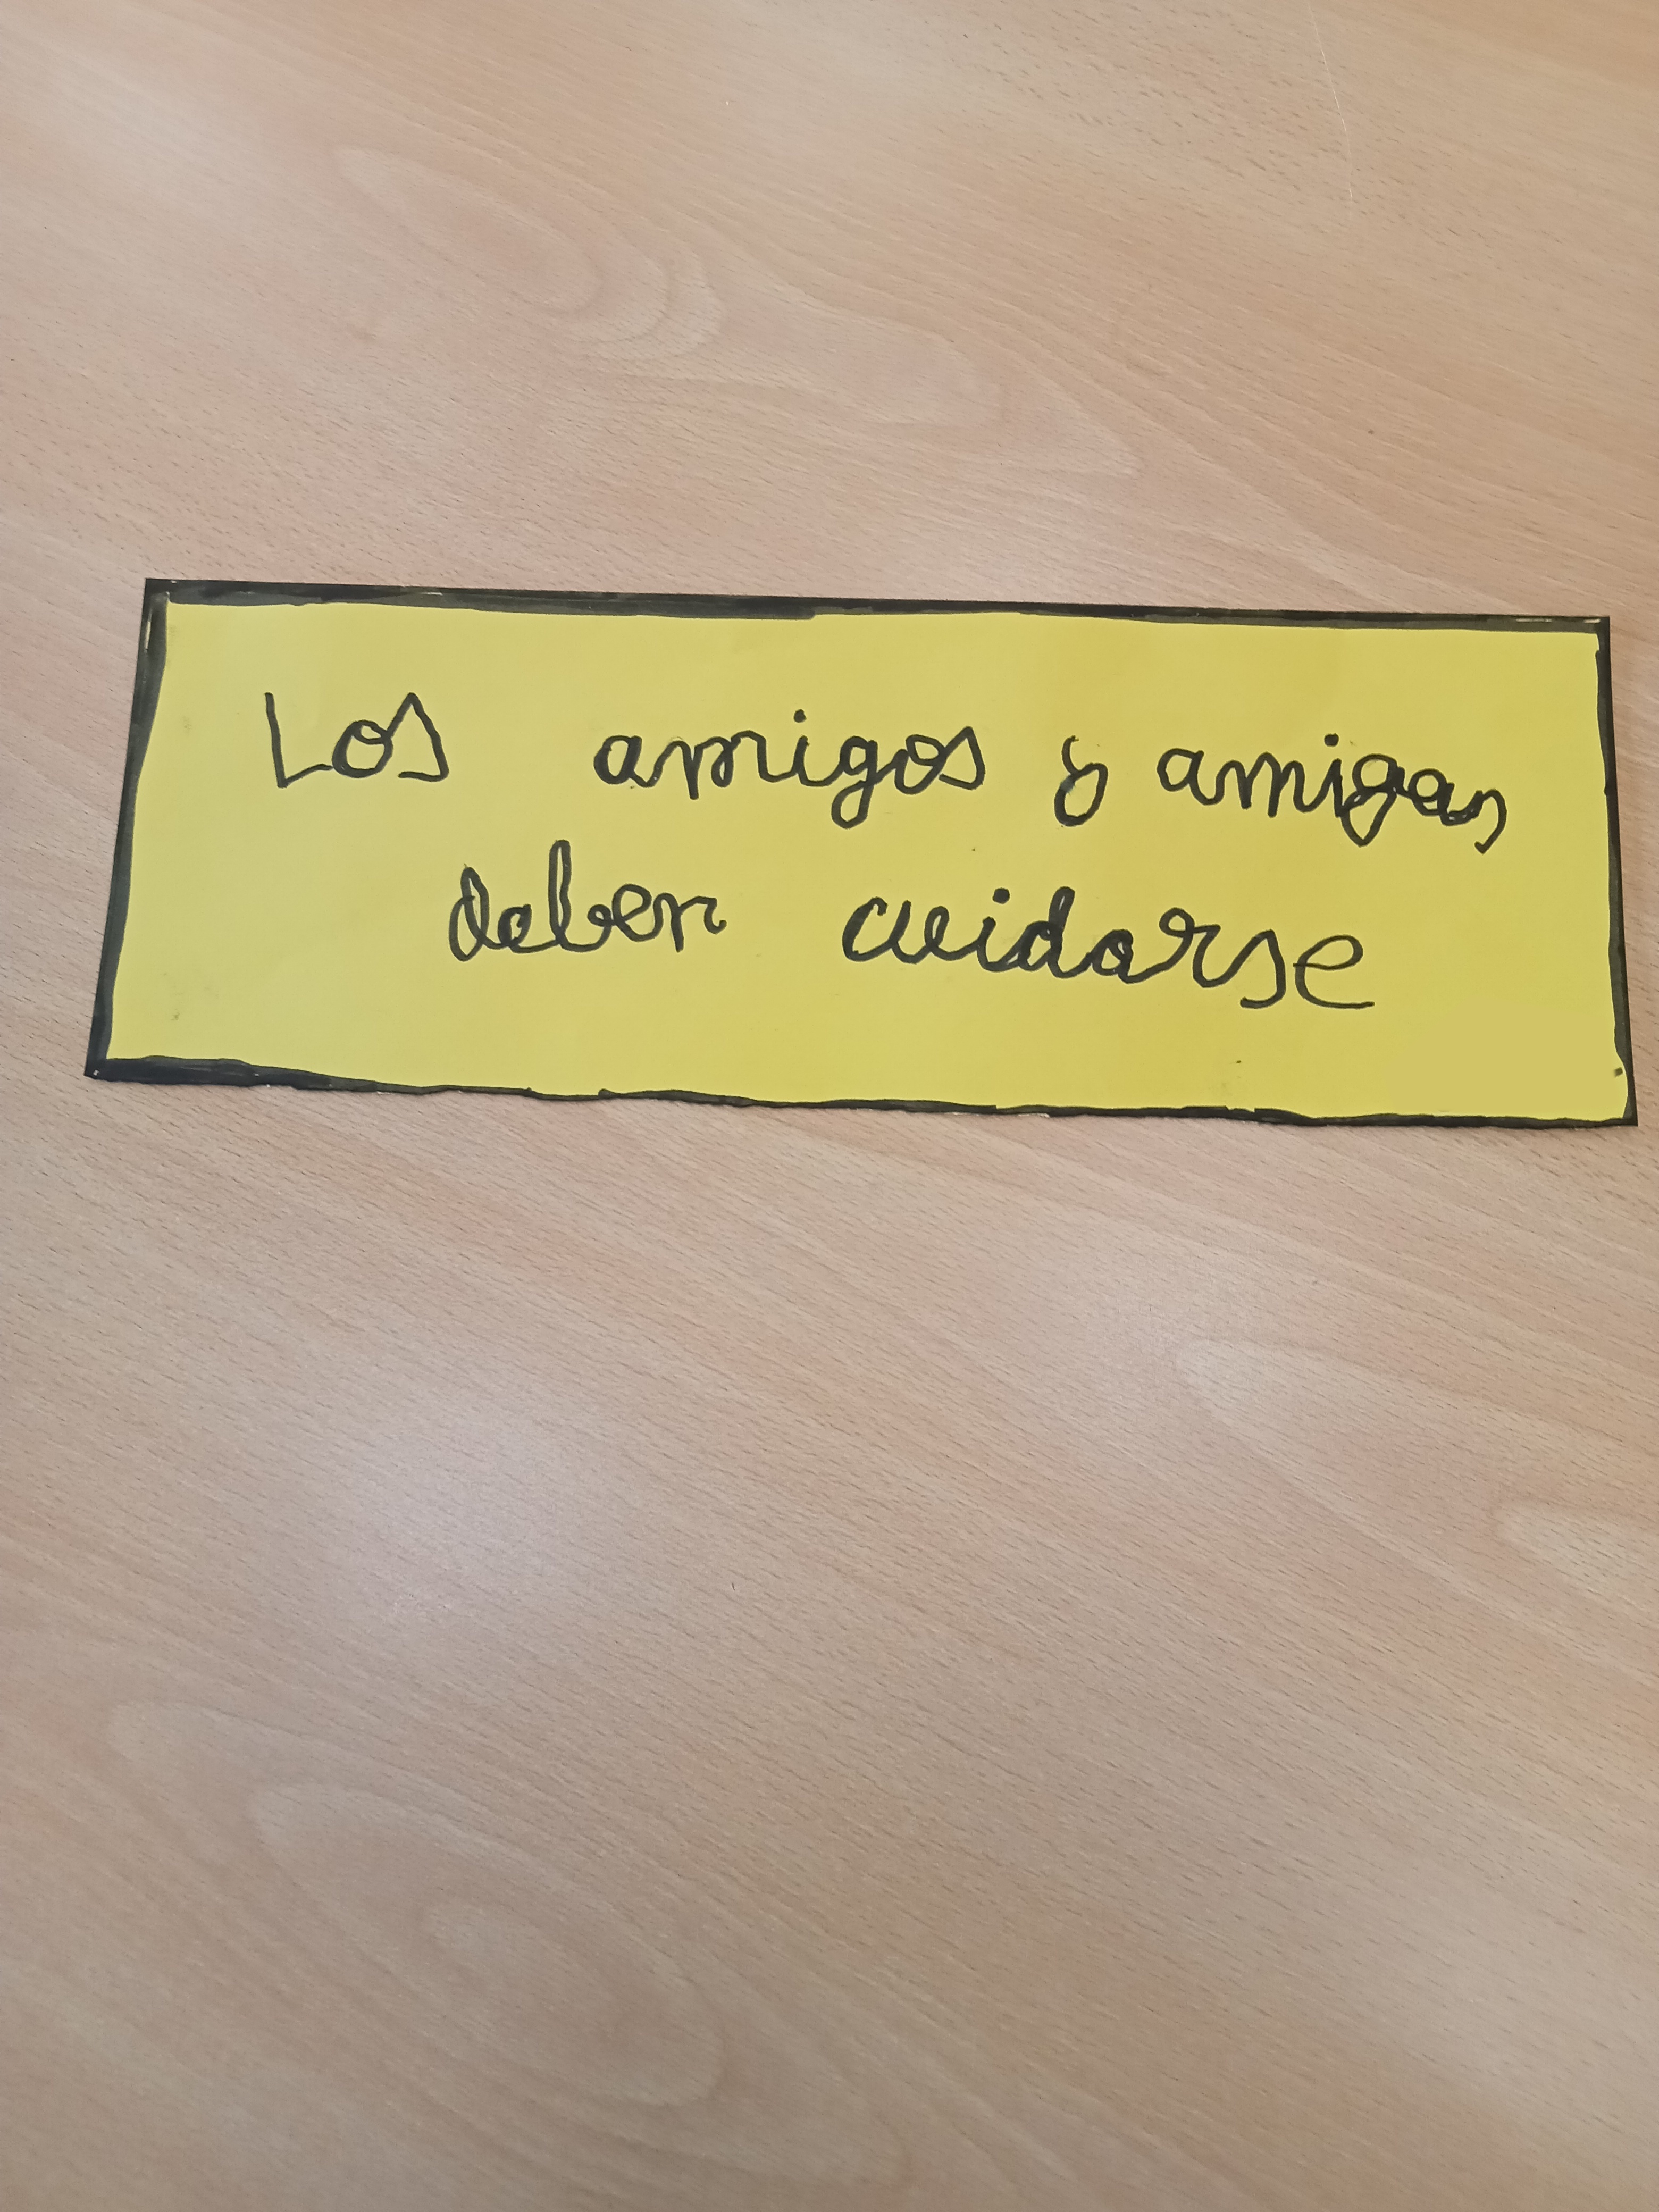 Los amigos y amigas
deben cuidarse